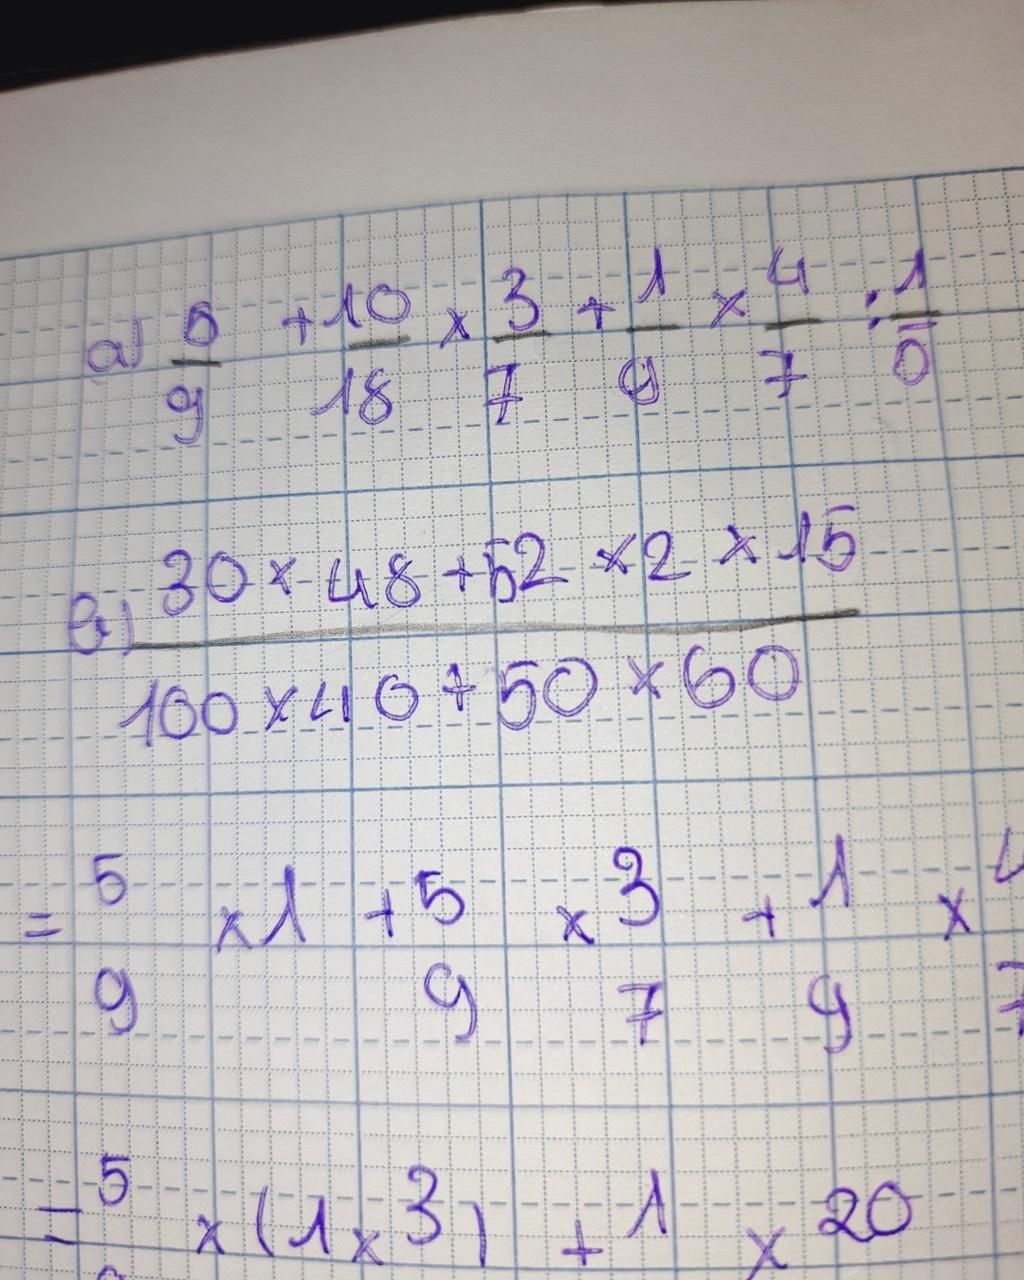 a) 5/9 + 10/18 × 3/7 + 1/9 × 4/7 : 1/5
b) (30 × 48 + 52 × 2 × 15)/(100 × 40 + 50 × 60)
= 5/9 × 1 + 5/9 × 3/7 + 1/9 × 4/7
= 5 × (1 × 3) + 1 × 20